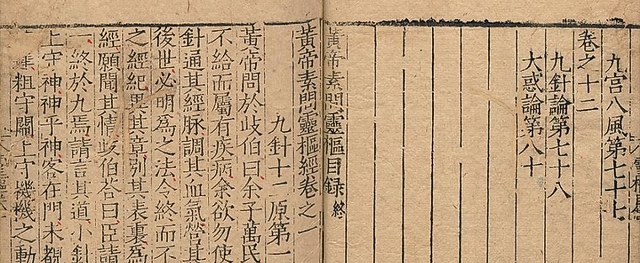 九宮八風第七十七
卷之十二
九針論第七十八
大惑論第八十
黃帝素問靈樞目録 終
黃帝素問靈樞經卷之一
九針十二原第一
黃帝問於歧伯曰余子萬民
不給而屬有疾病余欲勿使
針通其經脉調其血氣營其
後世必明爲之法令終而不
之經紀異其章別其表裏爲
經願聞其情歧伯荅曰臣請
一終於九焉請言其道小針
上守神神乎神客在門未覩
粗守關上守機機之動